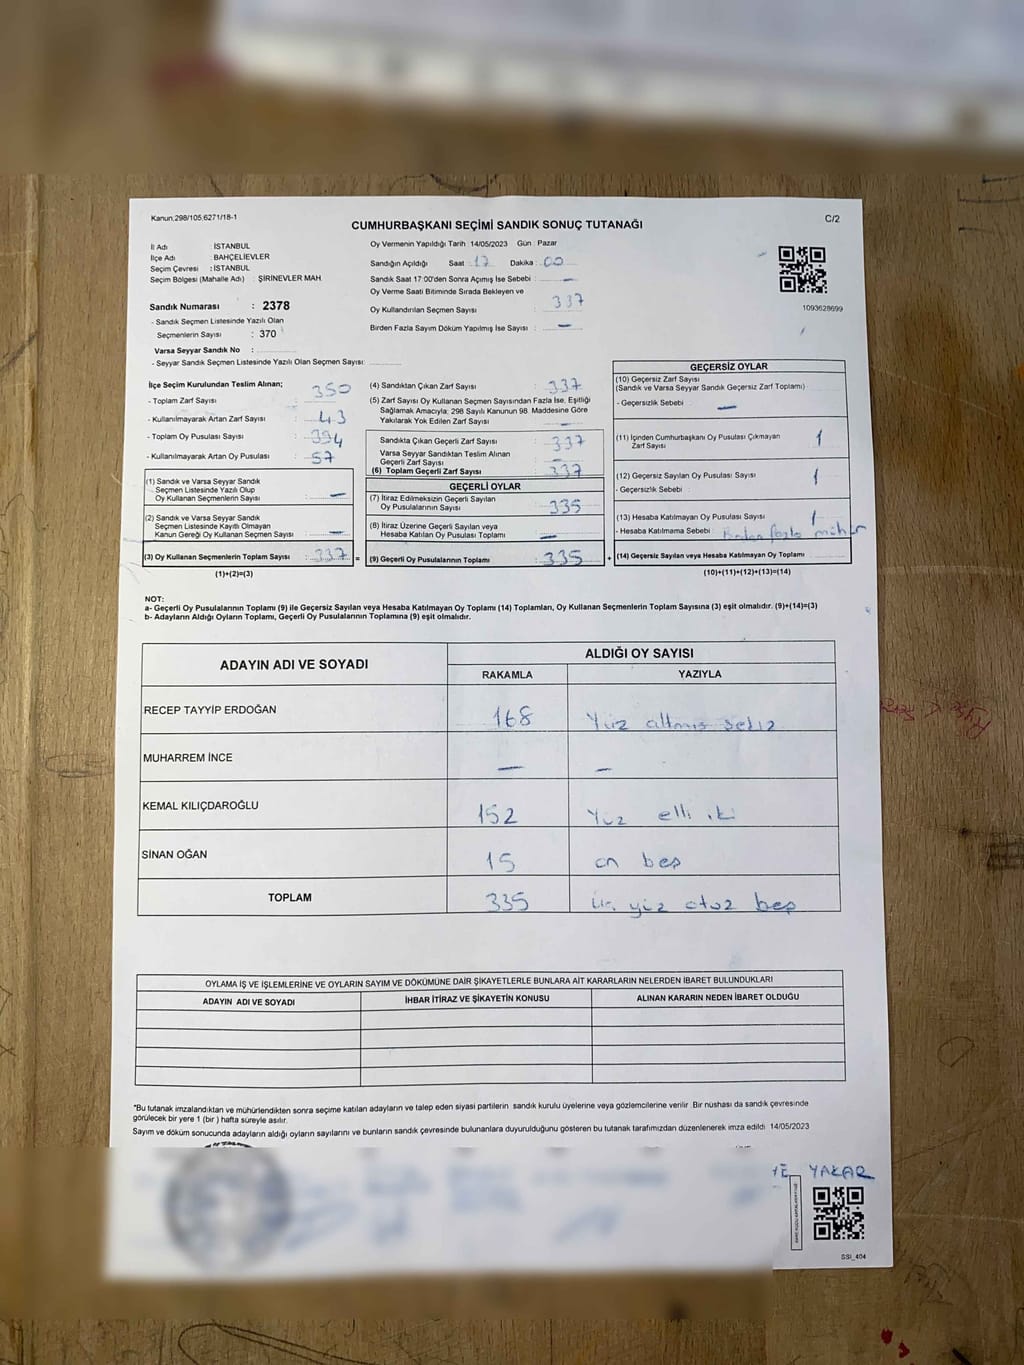 Kanun.298/105.6271/18-1
C/2
CUMHURBAŞKANI SEÇİMİ SANDIK SONUÇ TUTANAĞI
İl Adı : İSTANBUL
İlçe Adı : BAHÇELİEVLER
Seçim Çevresi : İSTANBUL
Seçim Bölgesi (Mahalle Adı) : ŞİRİNEVLER MAH.
Sandık Numarası : 2378
- Sandık Seçmen Listesinde Yazılı Olan
Seçmenlerin Sayısı : 370
Varsa Seyyar Sandık No :
- Seyyar Sandık Seçmen Listesinde Yazılı Olan Seçmen Sayısı:
Oy Vermenin Yapıldığı Tarih 14/05/2023 Gün : Pazar
Sandığın Açıldığı Saat 17 Dakika : 00
Sandık Saat 17:00'den Sonra Açımış İse Sebebi : —
Oy Verme Saati Bitiminde Sırada Bekleyen ve
Oy Kullandırılan Seçmen Sayısı : 337
Birden Fazla Sayım Döküm Yapılmış İse Sayısı : —
1093628699
İlçe Seçim Kurulundan Teslim Alınan;
- Toplam Zarf Sayısı : 350
- Kullanılmayarak Artan Zarf Sayısı : 43
- Toplam Oy Pusulası Sayısı : 394
- Kullanılmayarak Artan Oy Pusulası : 57
(1) Sandık ve Varsa Seyyar Sandık
Seçmen Listesinde Yazılı Olup
Oy Kullanan Seçmenlerin Sayısı : —
(2) Sandık ve Varsa Seyyar Sandık
Seçmen Listesinde Kayıtlı Olmayan
Kanun Gereği Oy Kullanan Seçmen Sayısı : —
(3) Oy Kullanan Seçmenlerin Toplam Sayısı : 337 =
(1)+(2)=(3)
(4) Sandıktan Çıkan Zarf Sayısı : 337
(5) Zarf Sayısı Oy Kullanan Seçmen Sayısından Fazla İse, Eşitliği
Sağlamak Amacıyla; 298 Sayılı Kanunun 98. Maddesine Göre
Yakılarak Yok Edilen Zarf Sayısı : —
Sandıkta Çıkan Geçerli Zarf Sayısı : 337
Varsa Seyyar Sandıktan Teslim Alınan
Geçerli Zarf Sayısı : —
(6) Toplam Geçerli Zarf Sayısı : 337
GEÇERLİ OYLAR
(7) İtiraz Edilmeksizin Geçerli Sayılan
Oy Pusulalarının Sayısı : 335
(8) İtiraz Üzerine Geçerli Sayılan veya
Hesaba Katılan Oy Pusulası Toplamı : —
(9) Geçerli Oy Pusulalarının Toplamı : 335 +
GEÇERSİZ OYLAR
(10) Geçersiz Zarf Sayısı
(Sandık ve Varsa Seyyar Sandık Geçersiz Zarf Toplamı)
- Geçersizlik Sebebi : —
(11) İçinden Cumhurbaşkanı Oy Pusulası Çıkmayan
Zarf Sayısı : 1
(12) Geçersiz Sayılan Oy Pusulası Sayısı : 1
- Geçersizlik Sebebi :
(13) Hesaba Katılmayan Oy Pusulası Sayısı : 1
- Hesaba Katılmama Sebebi : fazla mühür
(14) Geçersiz Sayılan veya Hesaba Katılmayan Oy Toplamı
(10)+(11)+(12)+(13)=(14)
NOT:
a- Geçerli Oy Pusulalarının Toplamı (9) ile Geçersiz Sayılan veya Hesaba Katılmayan Oy Toplamı (14) Toplamları, Oy Kullanan Seçmenlerin Toplam Sayısına (3) eşit olmalıdır. (9)+(14)=(3)
b- Adayların Aldığı Oyların Toplamı, Geçerli Oy Pusulalarının Toplamına (9) eşit olmalıdır.
ADAYIN ADI VE SOYADI
ALDIĞI OY SAYISI
RAKAMLA YAZIYLA
RECEP TAYYİP ERDOĞAN 168 Yüz altmış sekiz
MUHARREM İNCE — —
KEMAL KILIÇDAROĞLU 152 Yüz elli iki
SİNAN OĞAN 15 on beş
TOPLAM 335 üç yüz otuz beş
OYLAMA İŞ VE İŞLEMLERİNE VE OYLARIN SAYIM VE DÖKÜMÜNE DAİR ŞİKAYETLERLE BUNLARA AİT KARARLARIN NELERDEN İBARET BULUNDUKLARI
ADAYIN ADI VE SOYADI İHBAR İTİRAZ VE ŞİKAYETİN KONUSU ALINAN KARARIN NEDEN İBARET OLDUĞU
*Bu tutanak imzalandıktan ve mühürlendikten sonra seçime katılan adayların ve talep eden siyasi partilerin sandık kurulu üyelerine veya gözlemcilerine verilir. Bir nüshası da sandık çevresinde
görülecek bir yere 1 (bir) hafta süreyle asılır.
Sayım ve döküm sonucunda adayların aldığı oyların sayılarını ve bunların sandık çevresinde bulunanlara duyurulduğunu gösteren bu tutanak tarafımızdan düzenlenerek imza edildi 14/05/2023
YAKAR
SSI_404